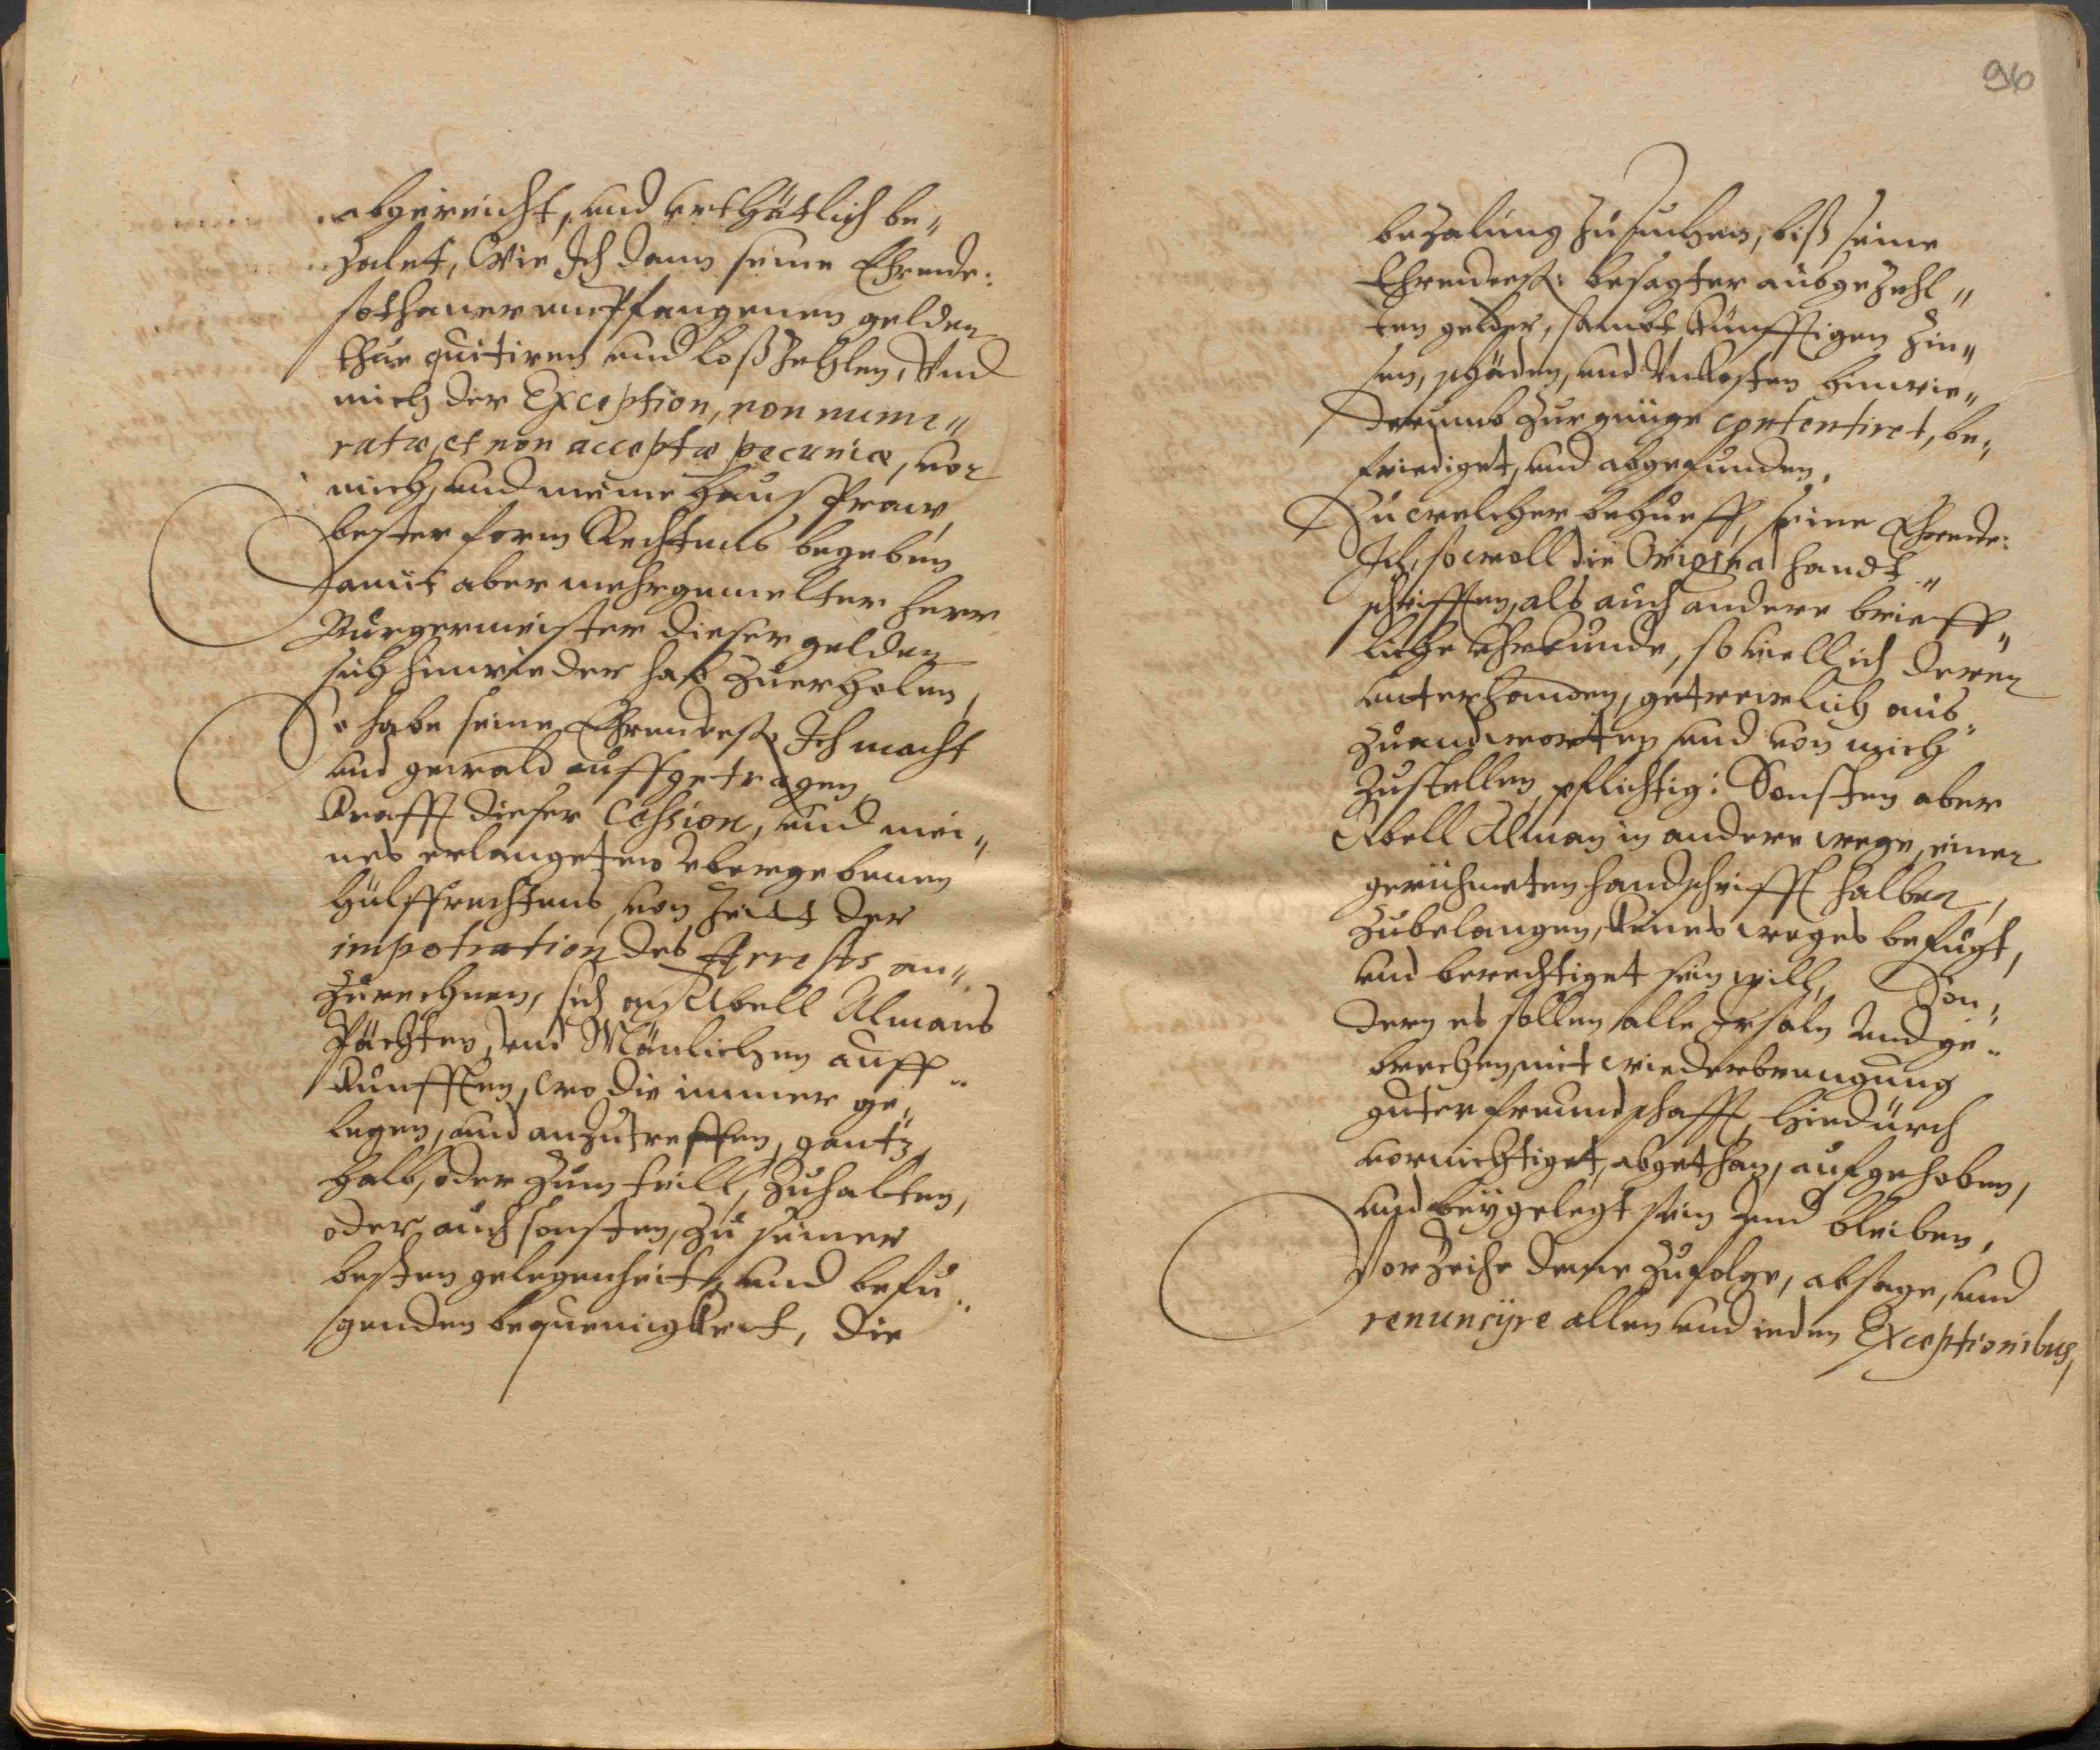 abgereicht, und erthätlich be„
zalet, Wie Ich dann seine Ehrende:
sothaner empfangenen gelder
thue quitiren und loß zehlen, Und
mich der Exception, non nume„
ratæ, et non acceptæ pecuniæ, vor
mich, und meine Haußfraw,
bester form Rechtens begeben
Damit aber mehrgemelter Herr
Burgermeister dieser gelder
sich hinwieder hab zuerholen,
So habe seine Ehrendest: Ich macht
und gewald auffgetragen,
Krafft dieser Cession, und mei„
nes erlangeten ubergebenen
hülffrechtens, von Zeitt der
impetration des Arrests an„
zurechnen, sich an Abell Ulmans
Pächten, und Mänlichen auff„
kunfften, wo die immer ge„
legen, und anzutreffen, gantz,
halb, oder zum teill, zuhalten,
oder auch sonsten, zu seiner
besten gelegenheit, und befu„
genden bequemigkeit, die
96
bezalung zusuchen, biß seine
Ehrendest: besagter außgezehl„
ten gelder, sambt künfftigen Zin„
sen, schäden, und Unkosten hinwie„
derumb zur gnüge contentiret, be„
friediget, und abgefunden.
Zu welcher behueff, seine Ehrende:
Ich, so woll die Original handt„
schrifften, als auch andere brieff„
liche uhrkunde, so viell ich deren
unterhanden, getrewlich aus„
zuandworten und von mich
zustellen, pflichtig: Sonsten aber
Abell Ulman in andere wege, einer
gerühmeten handschrifft halben,
zubelangen, keines weges befugt,
und berechtiget sein will, Son„
dern es sollen alle Irsaln und ge„
brechen, mit wiederbrengung
guter freundschafft, hiedurch
vornichtiget, abgethan, aufgehoben,
und beygelegt sein und bleiben,
Vorzeihe deme zufolge, absage, und
renuncijre allen und ieden Exceptionibus,